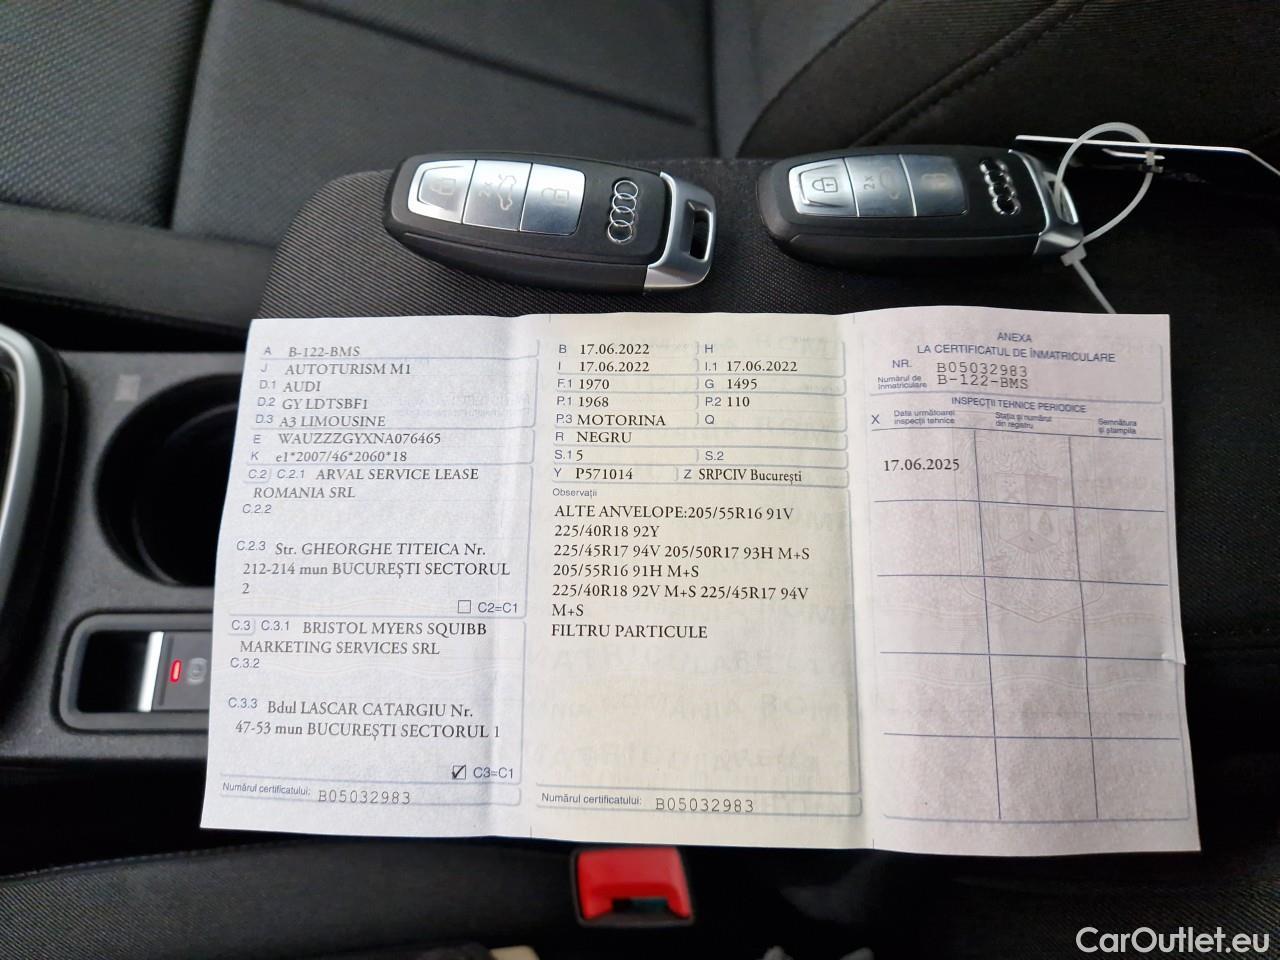 2x
2x
A B-122-BMS
J AUTOTURISM M1
D.1 AUDI
D.2 GY LDTSBF1
D.3 A3 LIMOUSINE
E WAUZZZGYXNA076465
K e1*2007/46*2060*18
C.2 C.2.1 ARVAL SERVICE LEASE
ROMANIA SRL
C.2.2
C.2.3 Str. GHEORGHE TITEICA Nr.
212-214 mun BUCUREȘTI SECTORUL
2
C2=C1
C.3 C.3.1 BRISTOL MYERS SQUIBB
MARKETING SERVICES SRL
C.3.2
C.3.3 Bdul LASCAR CATARGIU Nr.
47-53 mun BUCUREȘTI SECTORUL 1
C3=C1
Numărul certificatului: B05032983
B 17.06.2022 H
I 17.06.2022 I.1 17.06.2022
F.1 1970 G 1495
P.1 1968 P.2 110
P.3 MOTORINA Q
R NEGRU
S.1 5 S.2
Y P571014 Z SRPCIV București
Observații
ALTE ANVELOPE:205/55R16 91V
225/40R18 92Y
225/45R17 94V 205/50R17 93H M+S
205/55R16 91H M+S
225/40R18 92V M+S 225/45R17 94V
M+S
FILTRU PARTICULE
Numărul certificatului: B05032983
ANEXA
LA CERTIFICATUL DE ÎNMATRICULARE
NR. B05032983
Numărul de înmatriculare B-122-BMS
INSPECȚII TEHNICE PERIODICE
X Data următoarei inspecții tehnice Stația și numărul din registru Semnătura și ștampila
17.06.2025
CarOutlet.eu